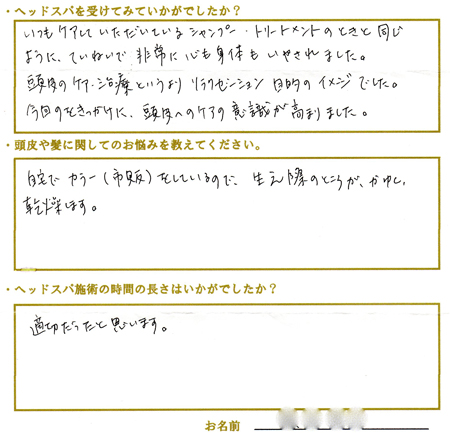 ・ヘッドスパを受けてみていかがでしたか？
いつもケアしていただいているシャンプー・トリートメントのときと同じ
ように、ていねいで非常に心も身体もいやされました。
頭皮のケア・治療というよりリラクゼーション目的のイメージでした。
今回のをきっかけに、頭皮へのケアの意識が高まりました。
・頭皮や髪に関してのお悩みを教えてください。
自宅でカラー（市販）をしているので、生え際のところが、かゆく、
乾燥します。
・ヘッドスパ施術の時間の長さはいかがでしたか？
適切だったと思います。
お名前